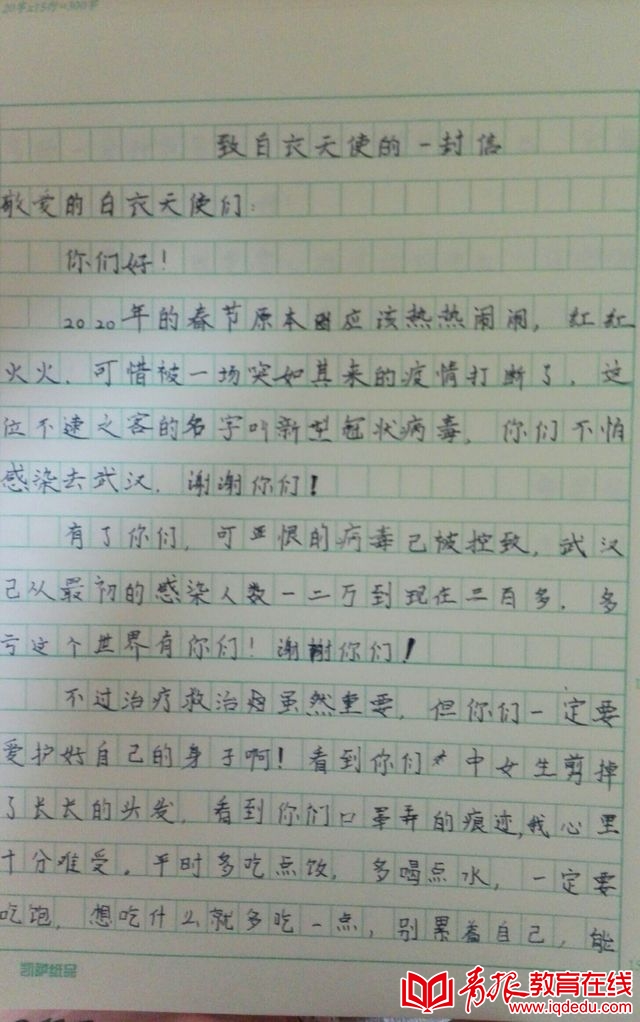 20字×15行=300字
致白衣天使的一封信
敬爱的白衣天使们：
你们好！
2020年的春节原本应该热热闹闹，红红
火火，可惜被一场突如其来的疫情打断了，这
位不速之客的名字叫新型冠状病毒，你们不怕
感染去武汉，谢谢你们！
有了你们，可恶恨的病毒已被控致，武汉
已从最初的感染人数一二万到现在三百多，多
亏这个世界有你们！谢谢你们！
不过治疗救治虽然重要，但你们一定要
爱护好自己的身子啊！看到你们中女生剪掉
了长长的头发，看到你们口罩弄的痕迹，我心里
十分难受。平时多吃点饭，多喝点水，一定要
吃饱，想吃什么就多吃一点，别累着自己，能
凯萨纸品
青报教育在线
www.iqdedu.com